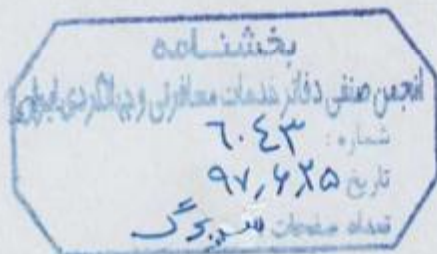 بخشنامه
انجمن صنفی دفاتر خدمات مسافرتی و جهانگردی ایران
شماره: ۶۰۴۳
تاریخ ۹۷٫۶٫۲۵
تعداد صفحات برگ